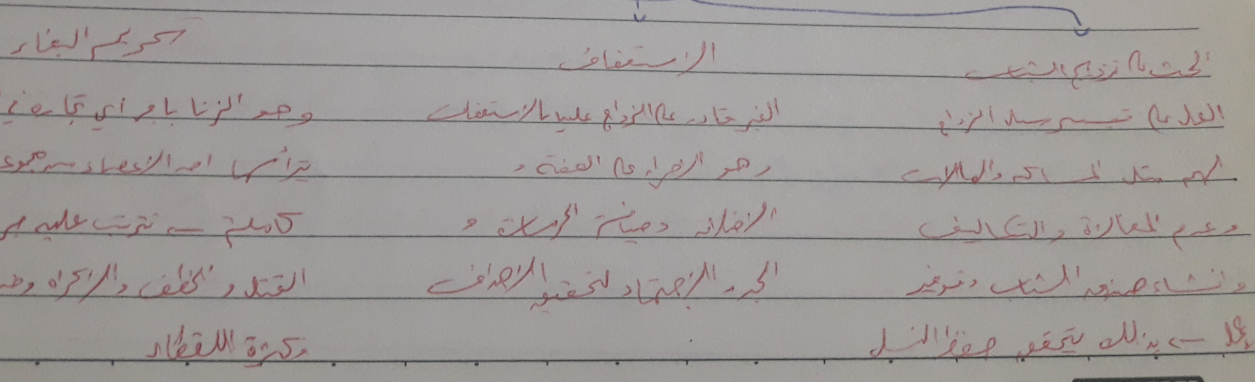 الحث على زواج الشباب
العمل على تيسير سبل الزواج
لهم مثل المساكن والصالات
وعدم المغالاة والتكاليف
وانشاء صندوق الشباب وتوفير
بذلك يتحقق حفظ النسل
الاستعفاف
الغير قادر على الزواج عليه بالاستعفاف
وهو على العفة و
الأخلاق وصيانة الحرمات و
الجد والاجتهاد لتحقيق الأهداف
تحريم البغاء
وهو الزنا بأجر أي تجارة في
يترأسها أحد الأعضاء من مجموعة
كاملة تترتب عليه
القتل والخطف والإكراه
وكثرة اللقطاء